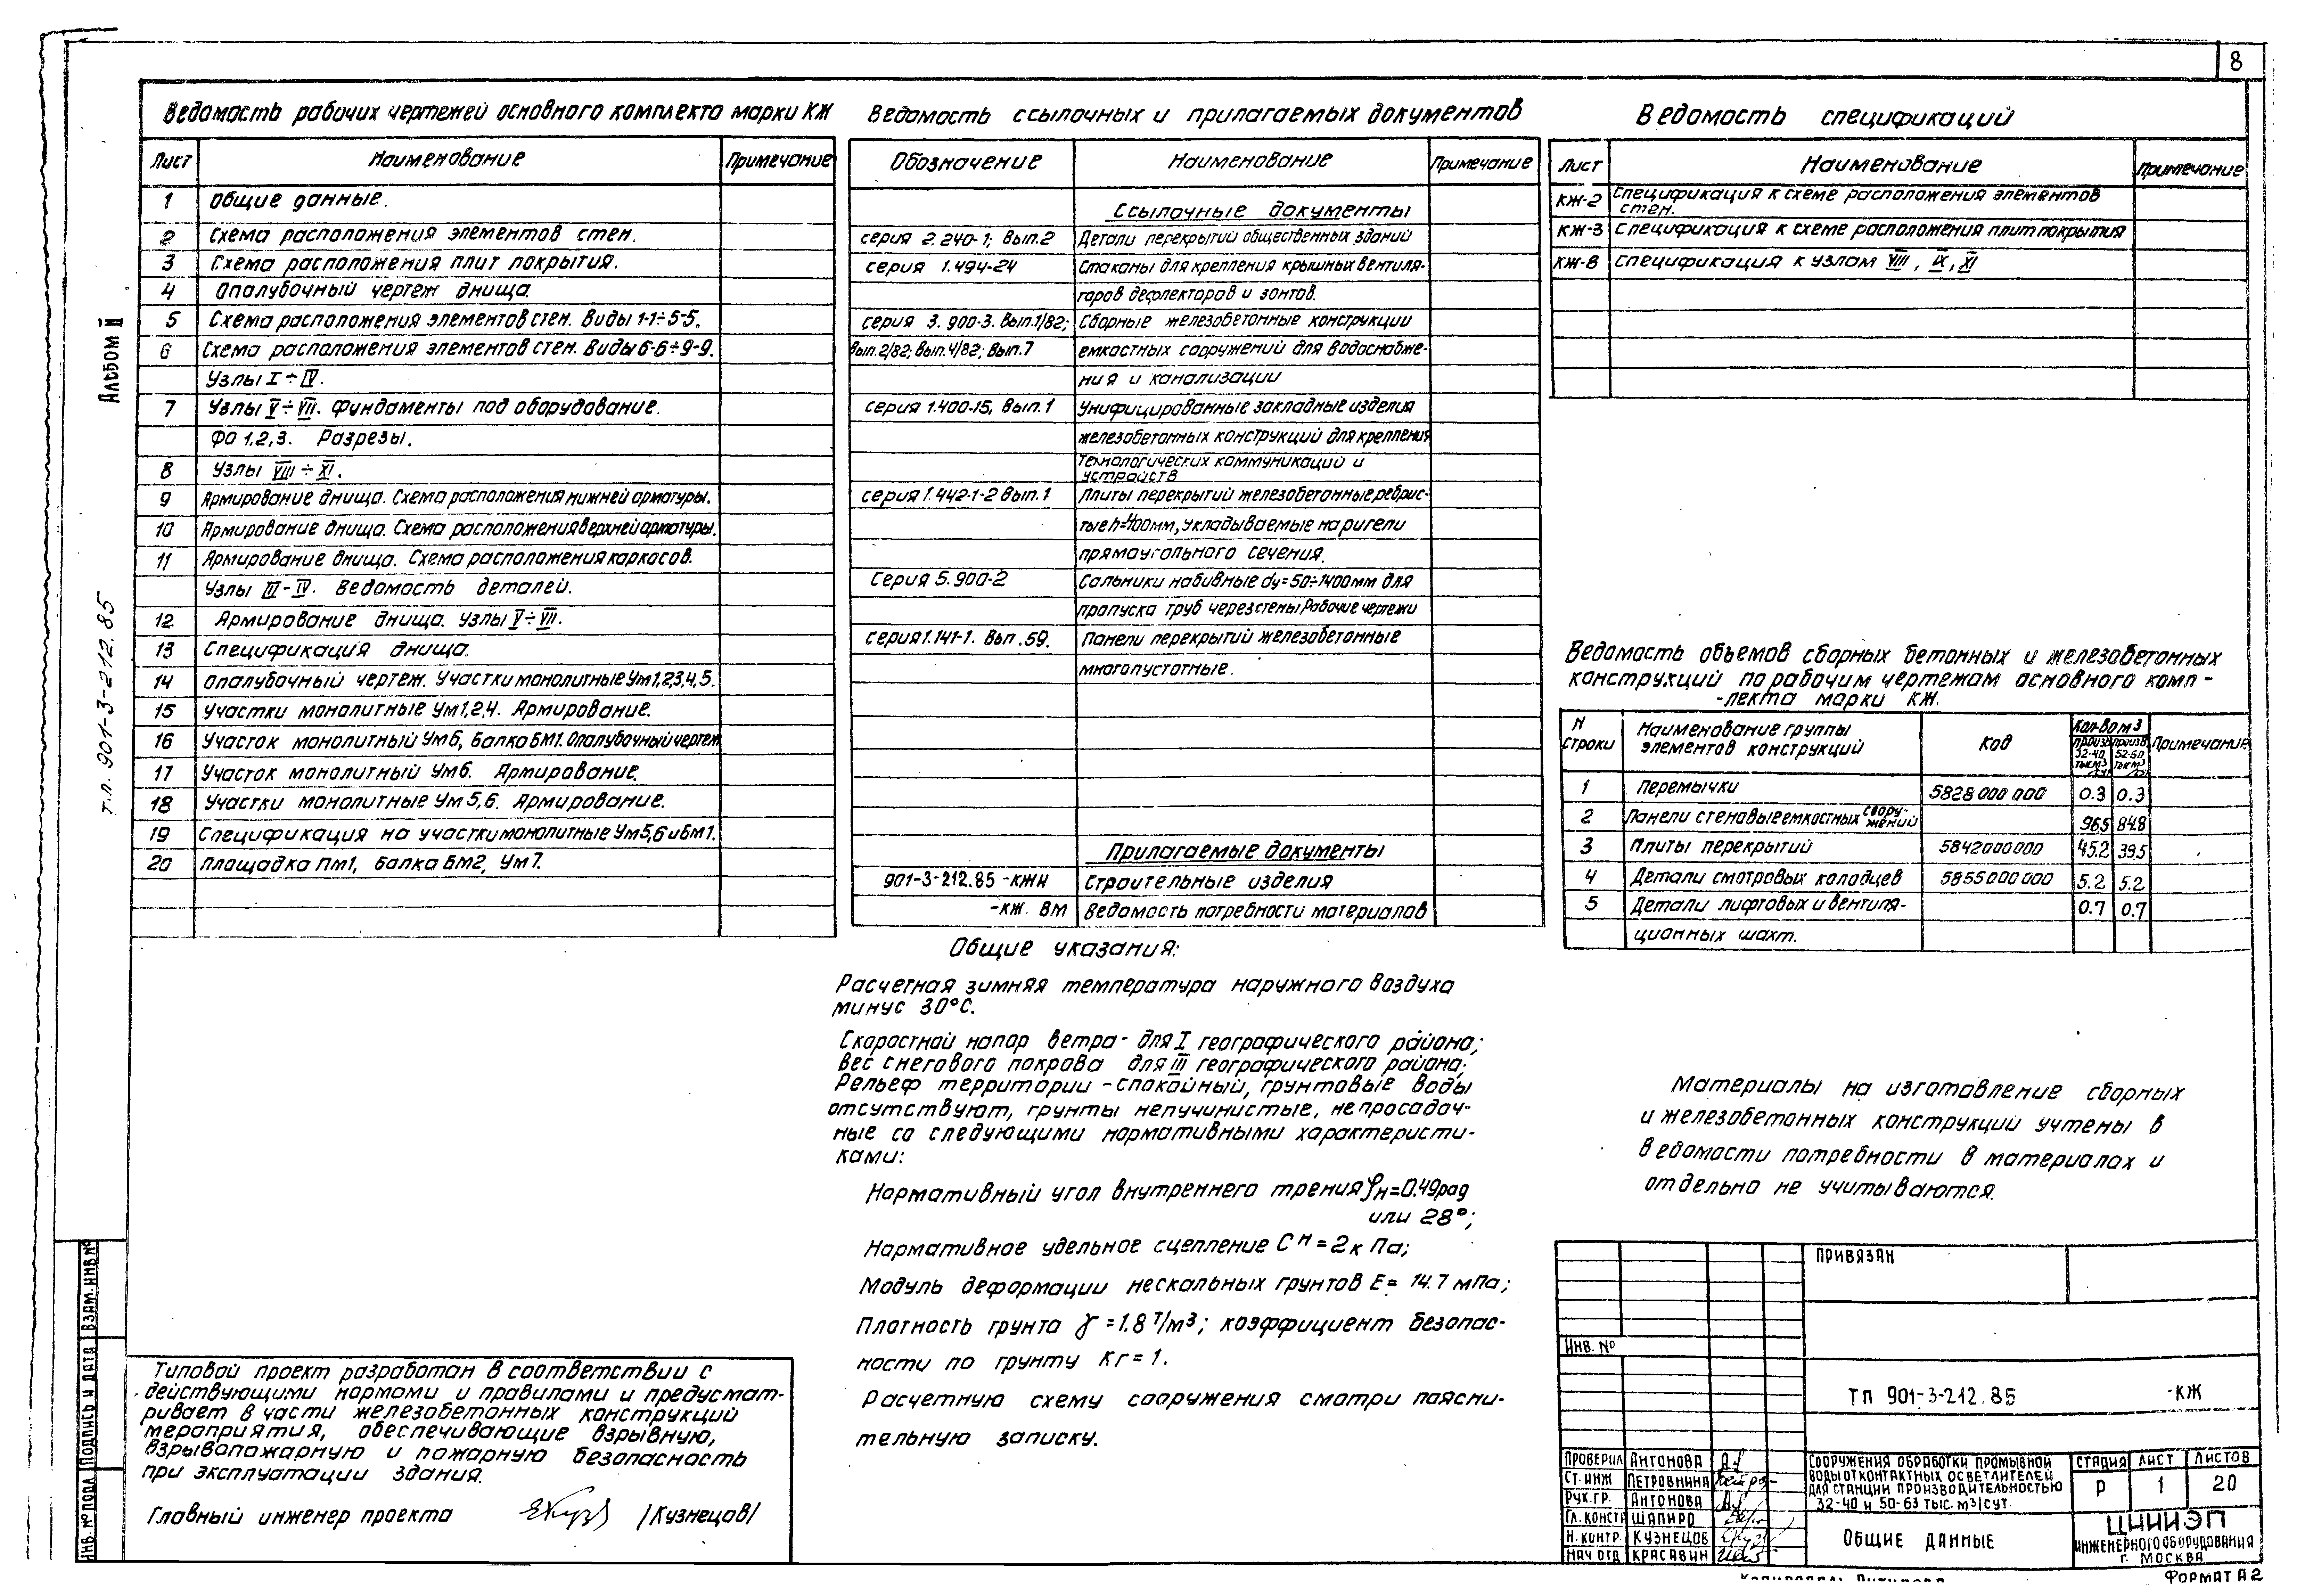 8
Альбом II
т.п. 901-3-212.85
Ведомость рабочих чертежей основного комплекта марки КЖ
Лист Наименование Примечание
1 Общие данные.
2 Схема расположения элементов стен.
3 Схема расположения плит покрытия.
4 Опалубочный чертеж днища.
5 Схема расположения элементов стен. Виды 1-1÷5-5.
6 Схема расположения элементов стен. Виды 6-6÷9-9.
Узлы I÷IV.
7 Узлы V÷VII. Фундаменты под оборудование.
ФО 1,2,3. Разрезы.
8 Узлы VIII÷XI.
9 Армирование днища. Схема расположения нижней арматуры.
10 Армирование днища. Схема расположения верхней арматуры.
11 Армирование днища. Схема расположения каркасов.
Узлы III-IV. Ведомость деталей.
12 Армирование днища. Узлы V÷VII.
13 Спецификация днища.
14 Опалубочный чертеж. Участки монолитные Ум1,2,3,4,5.
15 Участки монолитные Ум1,2,4. Армирование.
16 Участок монолитный Ум6, Балка БМ1. Опалубочный чертеж
17 Участок монолитный Ум6. Армирование.
18 Участки монолитные Ум5,6. Армирование.
19 Спецификация на участки монолитные Ум5,6 и Бм1.
20 Площадка Пм1, балка БМ2, Ум7.
Ведомость ссылочных и прилагаемых документов
Обозначение Наименование Примечание
Ссылочные документы
серия 2.240-1; Вып.2 Детали перекрытий общественных зданий
серия 1.494-24 Стаканы для крепления крышных вентиля-
торов дефлекторов и зонтов.
серия 3.900-3. Вып.1/82; Сборные железобетонные конструкции
Вып.2/82; Вып.4/82; Вып.7 емкостных сооружений для водоснабже-
ния и канализации
серия 1.400-15, Вып.1 Унифицированные закладные изделия
железобетонных конструкций для крепления
технологических коммуникаций и
устройств
серия 1.442-1-2 Вып.1 Плиты перекрытий железобетонные ребрис-
тые h=400мм, укладываемые на ригели
прямоугольного сечения.
Серия 5.900-2 Сальники набивные dу=50÷1400мм для
пропуска труб через стены Рабочие чертежи
серия 1.141-1. Вып.59. Панели перекрытий железобетонные
многопустотные.
Прилагаемые документы
901-3-212.85 -КЖИ Строительные изделия
-КЖ. ВМ Ведомость потребности материалов
Ведомость спецификаций
Лист Наименование Примечание
КЖ-2 Спецификация к схеме расположения элементов
стен.
КЖ-3 Спецификация к схеме расположения плит покрытия
КЖ-8 Спецификация к узлам VIII, IX, XI
Ведомость объемов сборных бетонных и железобетонных
конструкций по рабочим чертежам основного комп-
-лекта марки КЖ.
N строки Наименование группы элементов конструкций Код Кол-во м3 Примечание
произв 32-40 тыс м3/сут произв 52-60 тыс м3/сут
1 Перемычки 5828000000 0.3 0.3
2 Панели стеновые емкостных сооружений 96.5 84.8
3 Плиты перекрытий 5842000000 45.2 39.5
4 Детали смотровых колодцев 5855000000 5.2 5.2
5 Детали лифтовых и вентиля- 0.7 0.7
ционных шахт.
Общие указания:
Расчетная зимняя температура наружного воздуха
минус 30°С.
Скоростной напор ветра - для I географического района;
Вес снегового покрова для III географического района;
Рельеф территории - спокойный, грунтовые воды
отсутствуют, грунты непучинистые, непросадоч-
ные со следующими нормативными характеристи-
ками:
Нормативный угол внутреннего трения φн=0.49рад
или 28°;
Нормативное удельное сцепление Cн=2кПа;
Модуль деформации нескальных грунтов E= 14.7 мПа;
Плотность грунта γ=1.8 Т/м3; коэффициент безопас-
ности по грунту Кг=1.
Расчетную схему сооружения смотри поясни-
тельную записку.
Материалы на изготовление сборных
и железобетонных конструкций учтены в
ведомости потребности в материалах и
отдельно не учитываются.
Типовой проект разработан в соответствии с
действующими нормами и правилами и предусмат-
ривает в части железобетонных конструкций
мероприятия, обеспечивающие взрывную,
взрывопожарную и пожарную безопасность
при эксплуатации здания.
Главный инженер проекта /Кузнецов/
Инв. № подл Подпись и дата Взам. инв №
Привязан
Инв. №
ТП 901-3-212.85 -КЖ
Проверил Антонова
Ст. инж Петровнина
Рук.гр. Антонова
Гл. констр Шапиро
Н. контр. Кузнецов
Нач отд Красавин
Сооружения обработки промывной
воды от контактных осветлителей
для станции производительностью
32-40 и 50-63 тыс. м3/сут.
Стадия Лист Листов
Р 1 20
Общие данные
ЦНИИЭП
инженерного оборудования
г. Москва
Формат А2